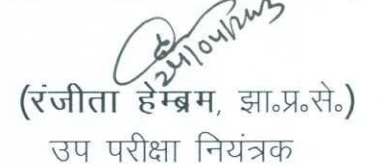 24/04/2023
(रंजीता हेम्ब्रम, झा.प्र.से.)
उप परीक्षा नियंत्रक